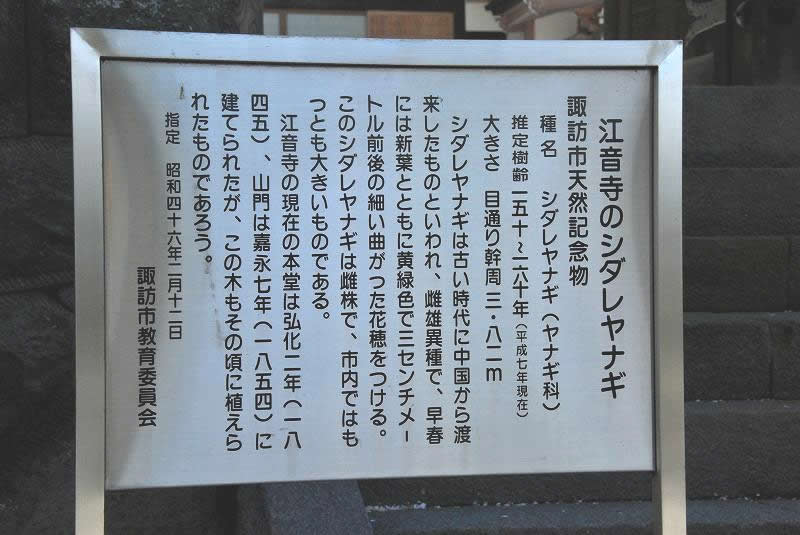 江音寺のシダレヤナギ
諏訪市天然記念物
種名 シダレヤナギ（ヤナギ科）
推定樹齢 一五十〜一六十年（平成七年現在）
大きさ 目通り幹周 三・八二m
シダレヤナギは古い時代に中国から渡
来したものといわれ、雌雄異種で、早春
には新葉とともに黄緑色で三センチメー
トル前後の細い曲がつた花穂をつける。
このシダレヤナギは雌株で、市内ではも
つとも大きいものである。
江音寺の現在の本堂は弘化二年（一八
四五）、山門は嘉永七年（一八五四）に
建てられたが、この木もその頃に植えら
れたものであろう。
指定 昭和四十六年二月十二日
諏訪市教育委員会